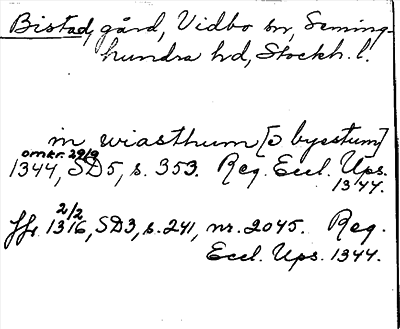 Bistad, gård, Vidbo sn, Seming-
hundra hd, Stockh. l.
in wiasthum [ɔ byestum]
omkr. 29/9
1344, SD5, s. 353. Reg. Eccl. Ups.
1344.
2/2
ffr. 1316, SD3, s. 241, nr. 2045. Reg.
Eccl. Ups. 1344.